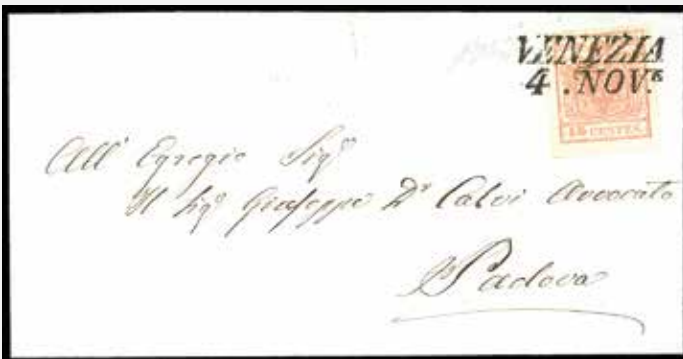 VENEZIA
4 . NOV.E
15 CENTES.
All' Egregio Sigr
Il Sigr Giuseppe Dr Calvi Avvocato
Padova